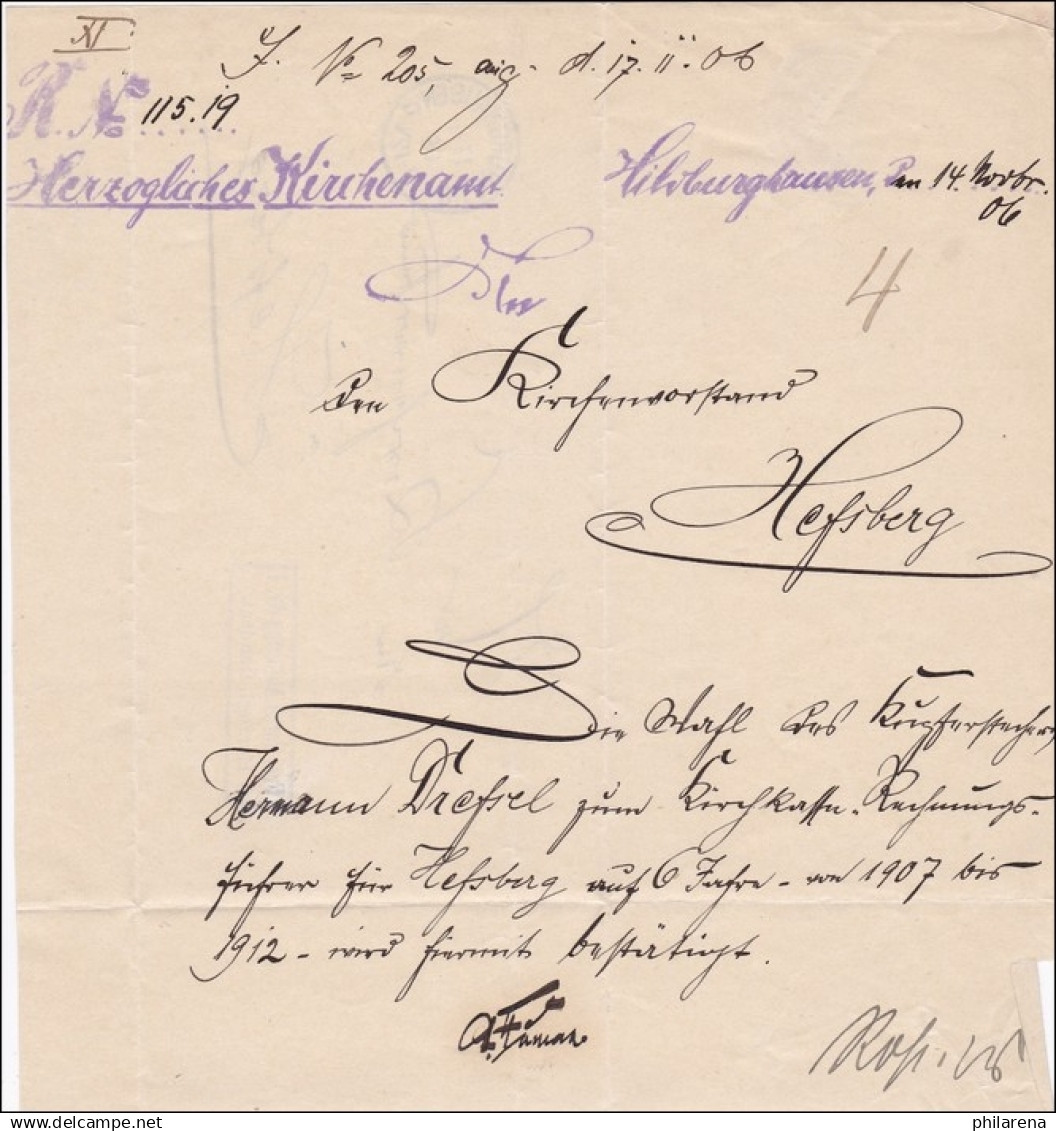 XI
J. No 205, eing. d. 17.11.06
K. No 115.19
Herzogliches Kirchenamt. Hildburghausen, den 14. Novbr.
06
An
4
den Kirchenvorstand
Heßberg
Die Wahl des Kupferstechers
Hermann Dreßel zum Kirchkassen-Rechnungs-
führer für Heßberg auf 6 Jahre - von 1907 bis
1912 - wird hiermit bestätigt.
philarena